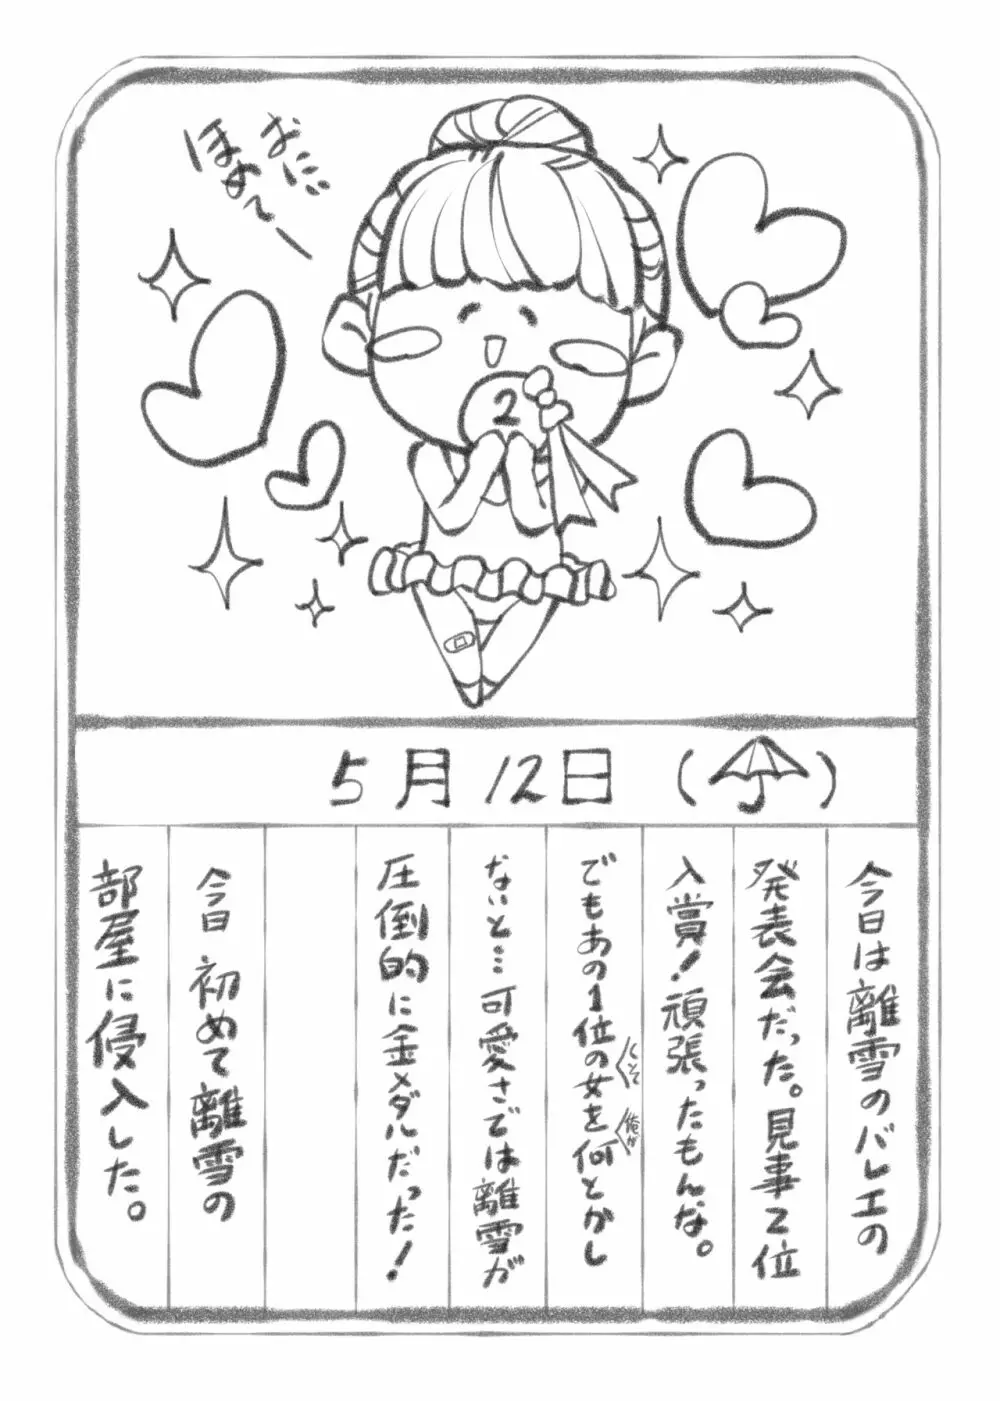 おにぃ
ほめて〜
5月12日(☂)
今日は離雪のバレエの
発表会だった。見事2位
入賞！頑張ったもんな。
でもあの1位の女を何とかし
くそて
俺が
ないと…可愛さでは離雪が
圧倒的に金メダルだった！
今日 初めて離雪の
部屋に侵入した。